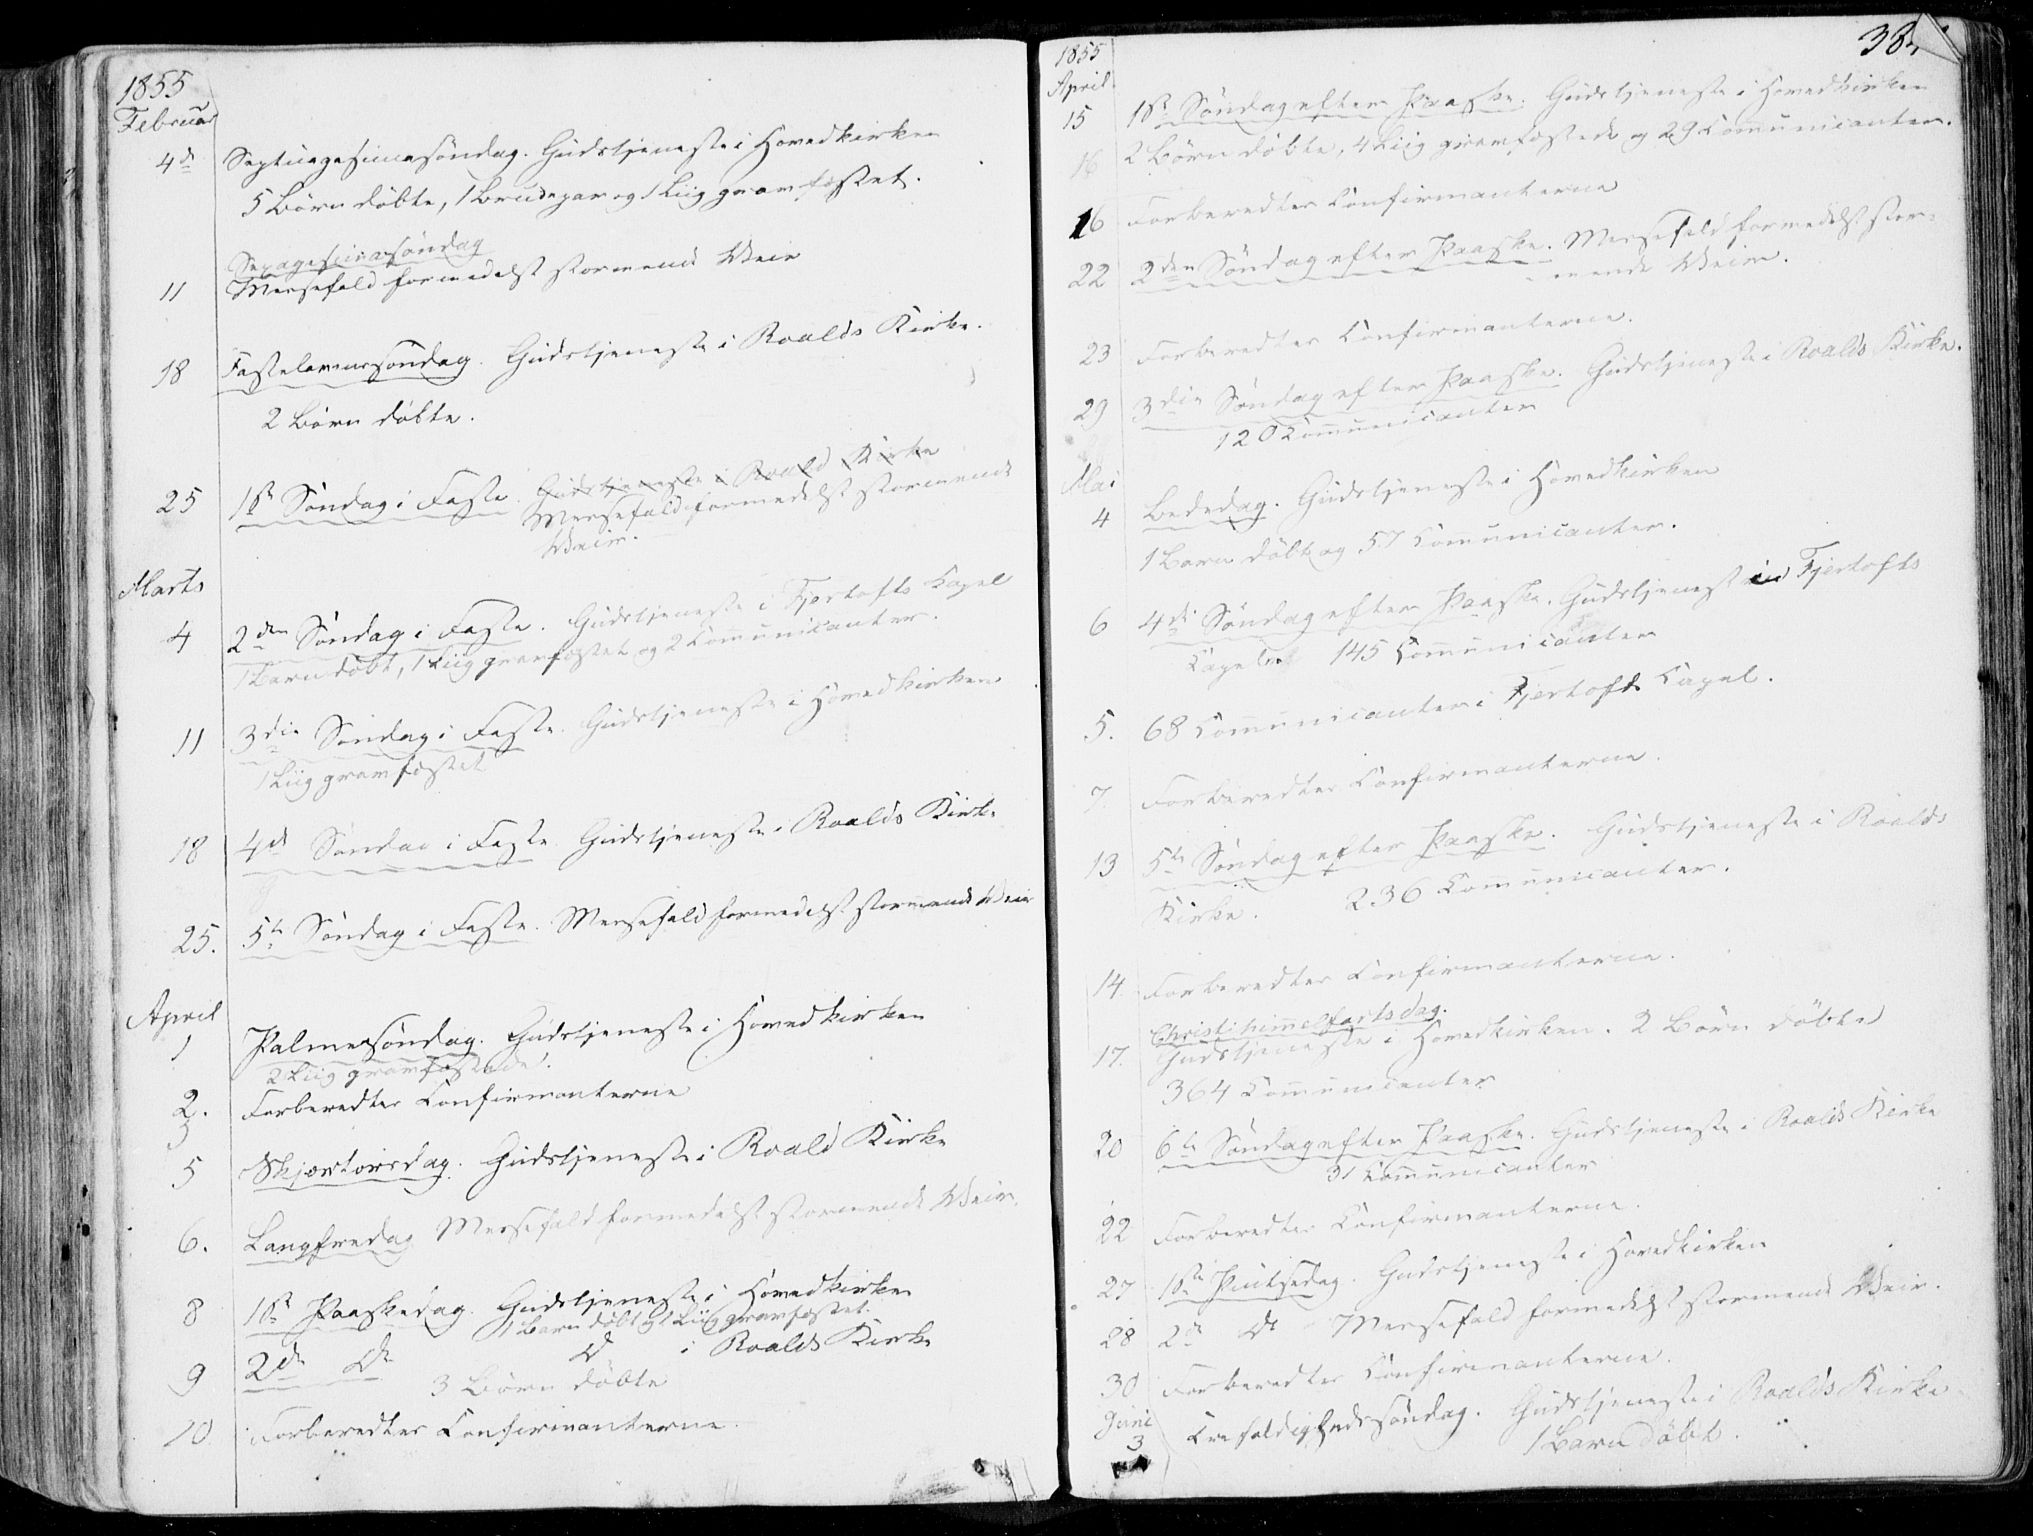 1855
Februar
4de Septuagesimasöndag. Gudstjeneste i Hovedkirken
5 Börn döbte, 1 Brudepar og 1 Liig gravfæstet.
Sexagesimasöndag
11 Messefald formedelst stormende Veir
18 Fastelavnssöndag. Gudstjeneste i Roalds Kirke.
2 Börn döbte.
25 1ste Söndag i Faste. Gudstjeneste i Roald Kirke
Messefald formedelst stormende
Veir.
Marts
4 2den Söndag i Faste. Gudstjeneste i Fjertofts Capel
1 Barn döbt, 1 Liig gravfæstet og 2 Communicanter.
11 3die Söndag i Faste. Gudstjeneste i Hovedkirken
1 Liig gravfæstet
18 4de Söndag i Faste Gudstjeneste i Roalds Kirke
25. 5te Söndag i Faste. Messefald formedelst stormende Veir
April
1 Palmesöndag. Gudstjeneste i Hovedkirken
2 Liig gravfæstede.
2. Forberedtes Confirmanterne
5 Skjærtorsdag. Gudstjeneste i Roald Kirke
6. Langfredag Messefald formedelst stormende Veir.
8 1ste Paaskedag. Gudstjeneste i Hovedkirken
1 Barn döbt og 1 Liig gravfæstet.
9 2den do do i Roalds Kirke
3 Börn döbte
10 Forberedtes Confirmanterne.
385
1855
April
15 1ste Söndag efter Paaske. Gudstjeneste i Hovedkirken
2 Börn döbte, 4 Liig gravfæstede og 29 Communicanter.
16
16 Forberedtes Confirmanterne
22 2den Söndag efter Paaske. Messefald formedelst stor-
mende Veir.
23 Forberedtes Confirmanterne.
29 3die Söndag efter Paaske. Gudstjeneste i Roalds Kirke.
120 Communicanter
Mai
4 Bededag. Gudstjeneste i Hovedkirken
1 Barn döbt og 57 Communicanter.
6 4de Söndag efter Paaske. Gudstjeneste i Fjertofts
Capel 145 Communicanter
5. 68 Communicanter i Fjertofts Capel.
7. Forberedtes Confirmanterne.
13 5te Söndag efter Paaske. Gudstjeneste i Roalds
Kirke. 236 Communicanter.
14. Forberedtes Confirmanterne.
Christi himmelfartsdag.
17. Gudstjeneste i Hovedkirken. 2 Börn döbte
364 Communicanter
20 6te Söndag efter Paaske. Gudstjeneste i Roalds Kirke
31 Communicanter
22 Forberedtes Confirmanterne.
27 1ste Pintsedag. Gudstjeneste i Hovedkirken
28 2de do Messefald formedelst stormende Veir.
30 Forberedtes Confirmanterne.
Juni
3 Trefoldighedssöndag. Gudstjeneste i Roalds Kirke
1 Barn döbt.